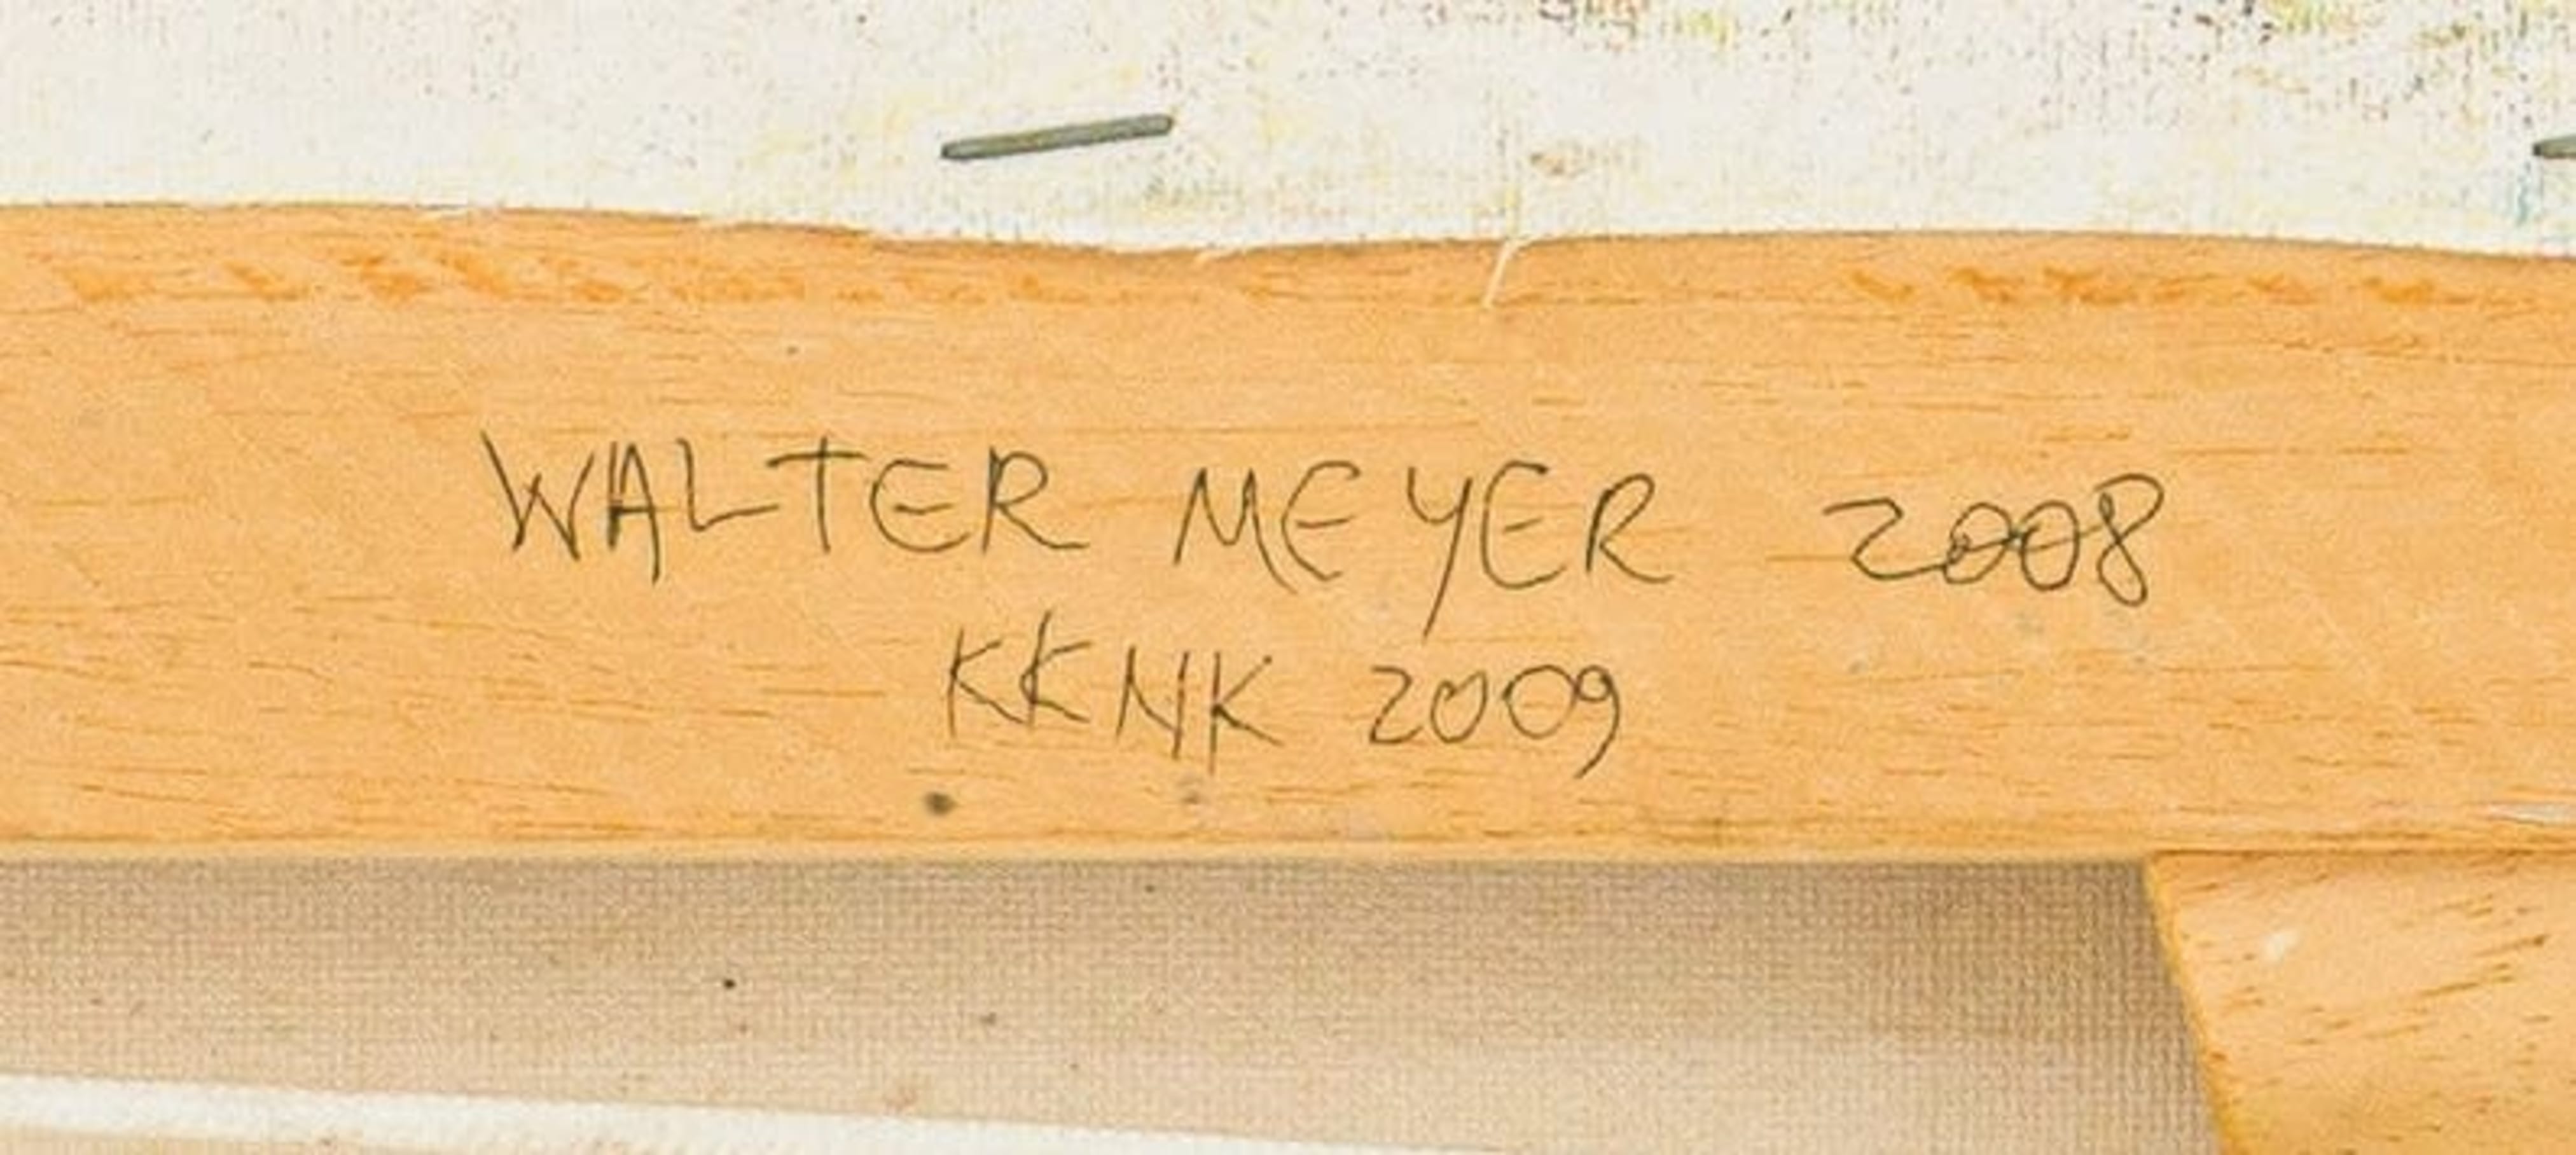 WALTER MEYER 2008
KKNK 2009